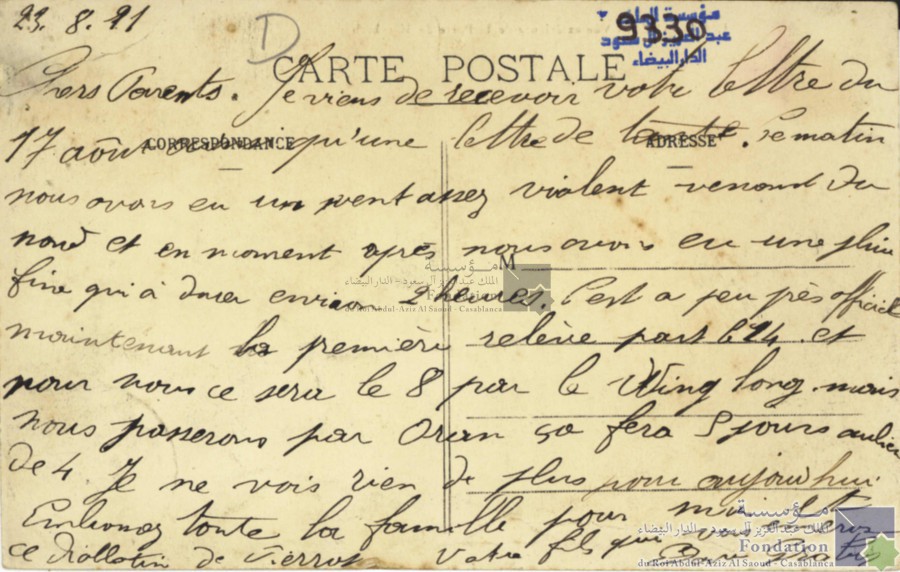 23. 8. 21
D
9330
مؤسسة الملك
عبد العزيز آل سعود
الدار البيضاء
CARTE POSTALE
Chers Parents. Je viens de recevoir votre lettre du
17 août qu'une lettre de Ce matin
CORRESPONDANCE
ADRESSE
nous avons eu un vent assez violent venant du
nord et en moment après nous avons eu une pluie
M
fine qui à durer environ 2 heures. C'est a peu près officiel
maintenant la première relève part le 24 et
pour nous ce sera le 8 par le Wing long. mais
nous passerons par Oran sa fera 5 jours au lieu
de 4 Je ne vois rien de plus pour aujourd'hui
Embrassez toute la famille pour moi et
ce de Pierrot Votre fils qui vous
مؤسسة
الملك عبد العزيز آل سعود - الدار البيضاء
Fondation
du Roi Abdul-Aziz Al Saoud - Casablanca
مؤسسة
الملك عبد العزيز آل سعود - الدار البيضاء
Fondation
du Roi Abdul-Aziz Al Saoud - Casablanca